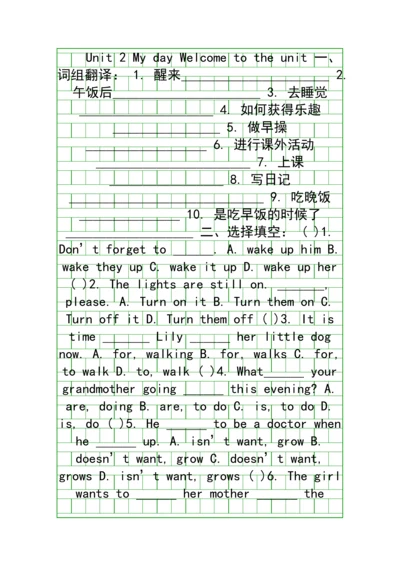 Unit 2 My day Welcome to the unit 一、
词组翻译： 1. 醒来____________________ 2.
午饭后____________________ 3. 去睡觉
____________________ 4. 如何获得乐趣
________________ 5. 做早操
________________ 6. 进行课外活动
__________________ 7. 上课
________________ 8. 写日记
____________________ 9. 吃晚饭
________________ 10. 是吃早饭的时候了
__________________ 二、选择填空： ( )1.
Don't forget to ______. A. wake up him B.
wake they up C. wake it up D. wake up her
( )2. The lights are still on. _______,
please. A. Turn on it B. Turn them on C.
Turn off it D. Turn them off ( )3. It is
time _______ Lily _____ her little dog
now. A. for, walking B. for, walks C. for,
to walk D. to, walk ( )4. What______ your
grandmother going ______ this evening? A.
are, doing B. are, to do C. is, to do D.
is, do ( )5. He ______ to be a doctor when
he ______ up. A. isn't want, grow B.
doesn't want, grow C. doesn't want,
grows D. isn't want, grows ( )6. The girl
wants to ______ her mother ______ the